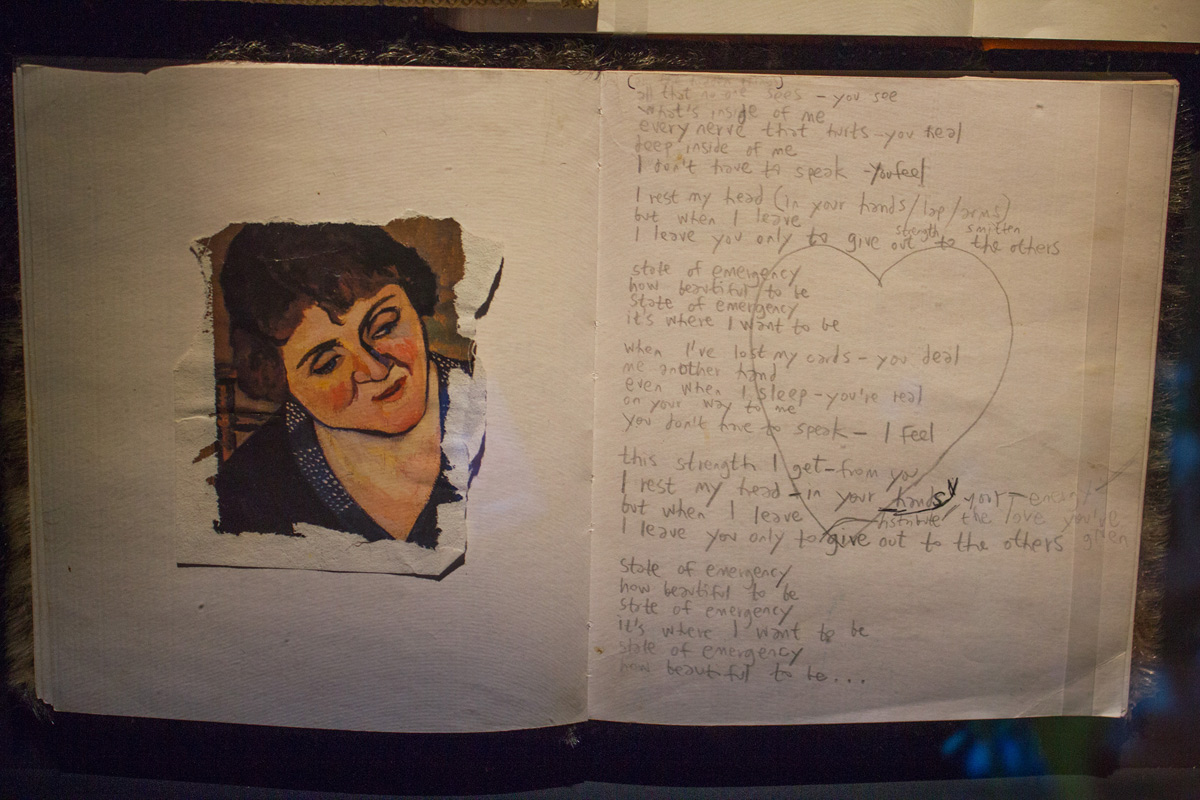 all that no one sees - you see
what's inside of me
every nerve that hurts - you heal
deep inside of me
I don't have to speak - you feel
I rest my head (in your hands/lap/arms)
but when I leave
strength smitten
I leave you only to give out to the others
state of emergency
how beautiful to be
state of emergency
it's where I want to be
when I've lost my cards - you deal
me another hand
even when I sleep - you're real
on your way to me
you don't have to speak - I feel
this strength I get - from you
I rest my head - in your hands your energy
but when I leave distribute the love you've given
I leave you only to give out to the others
state of emergency
how beautiful to be
state of emergency
it's where I want to be
state of emergency
how beautiful to be...